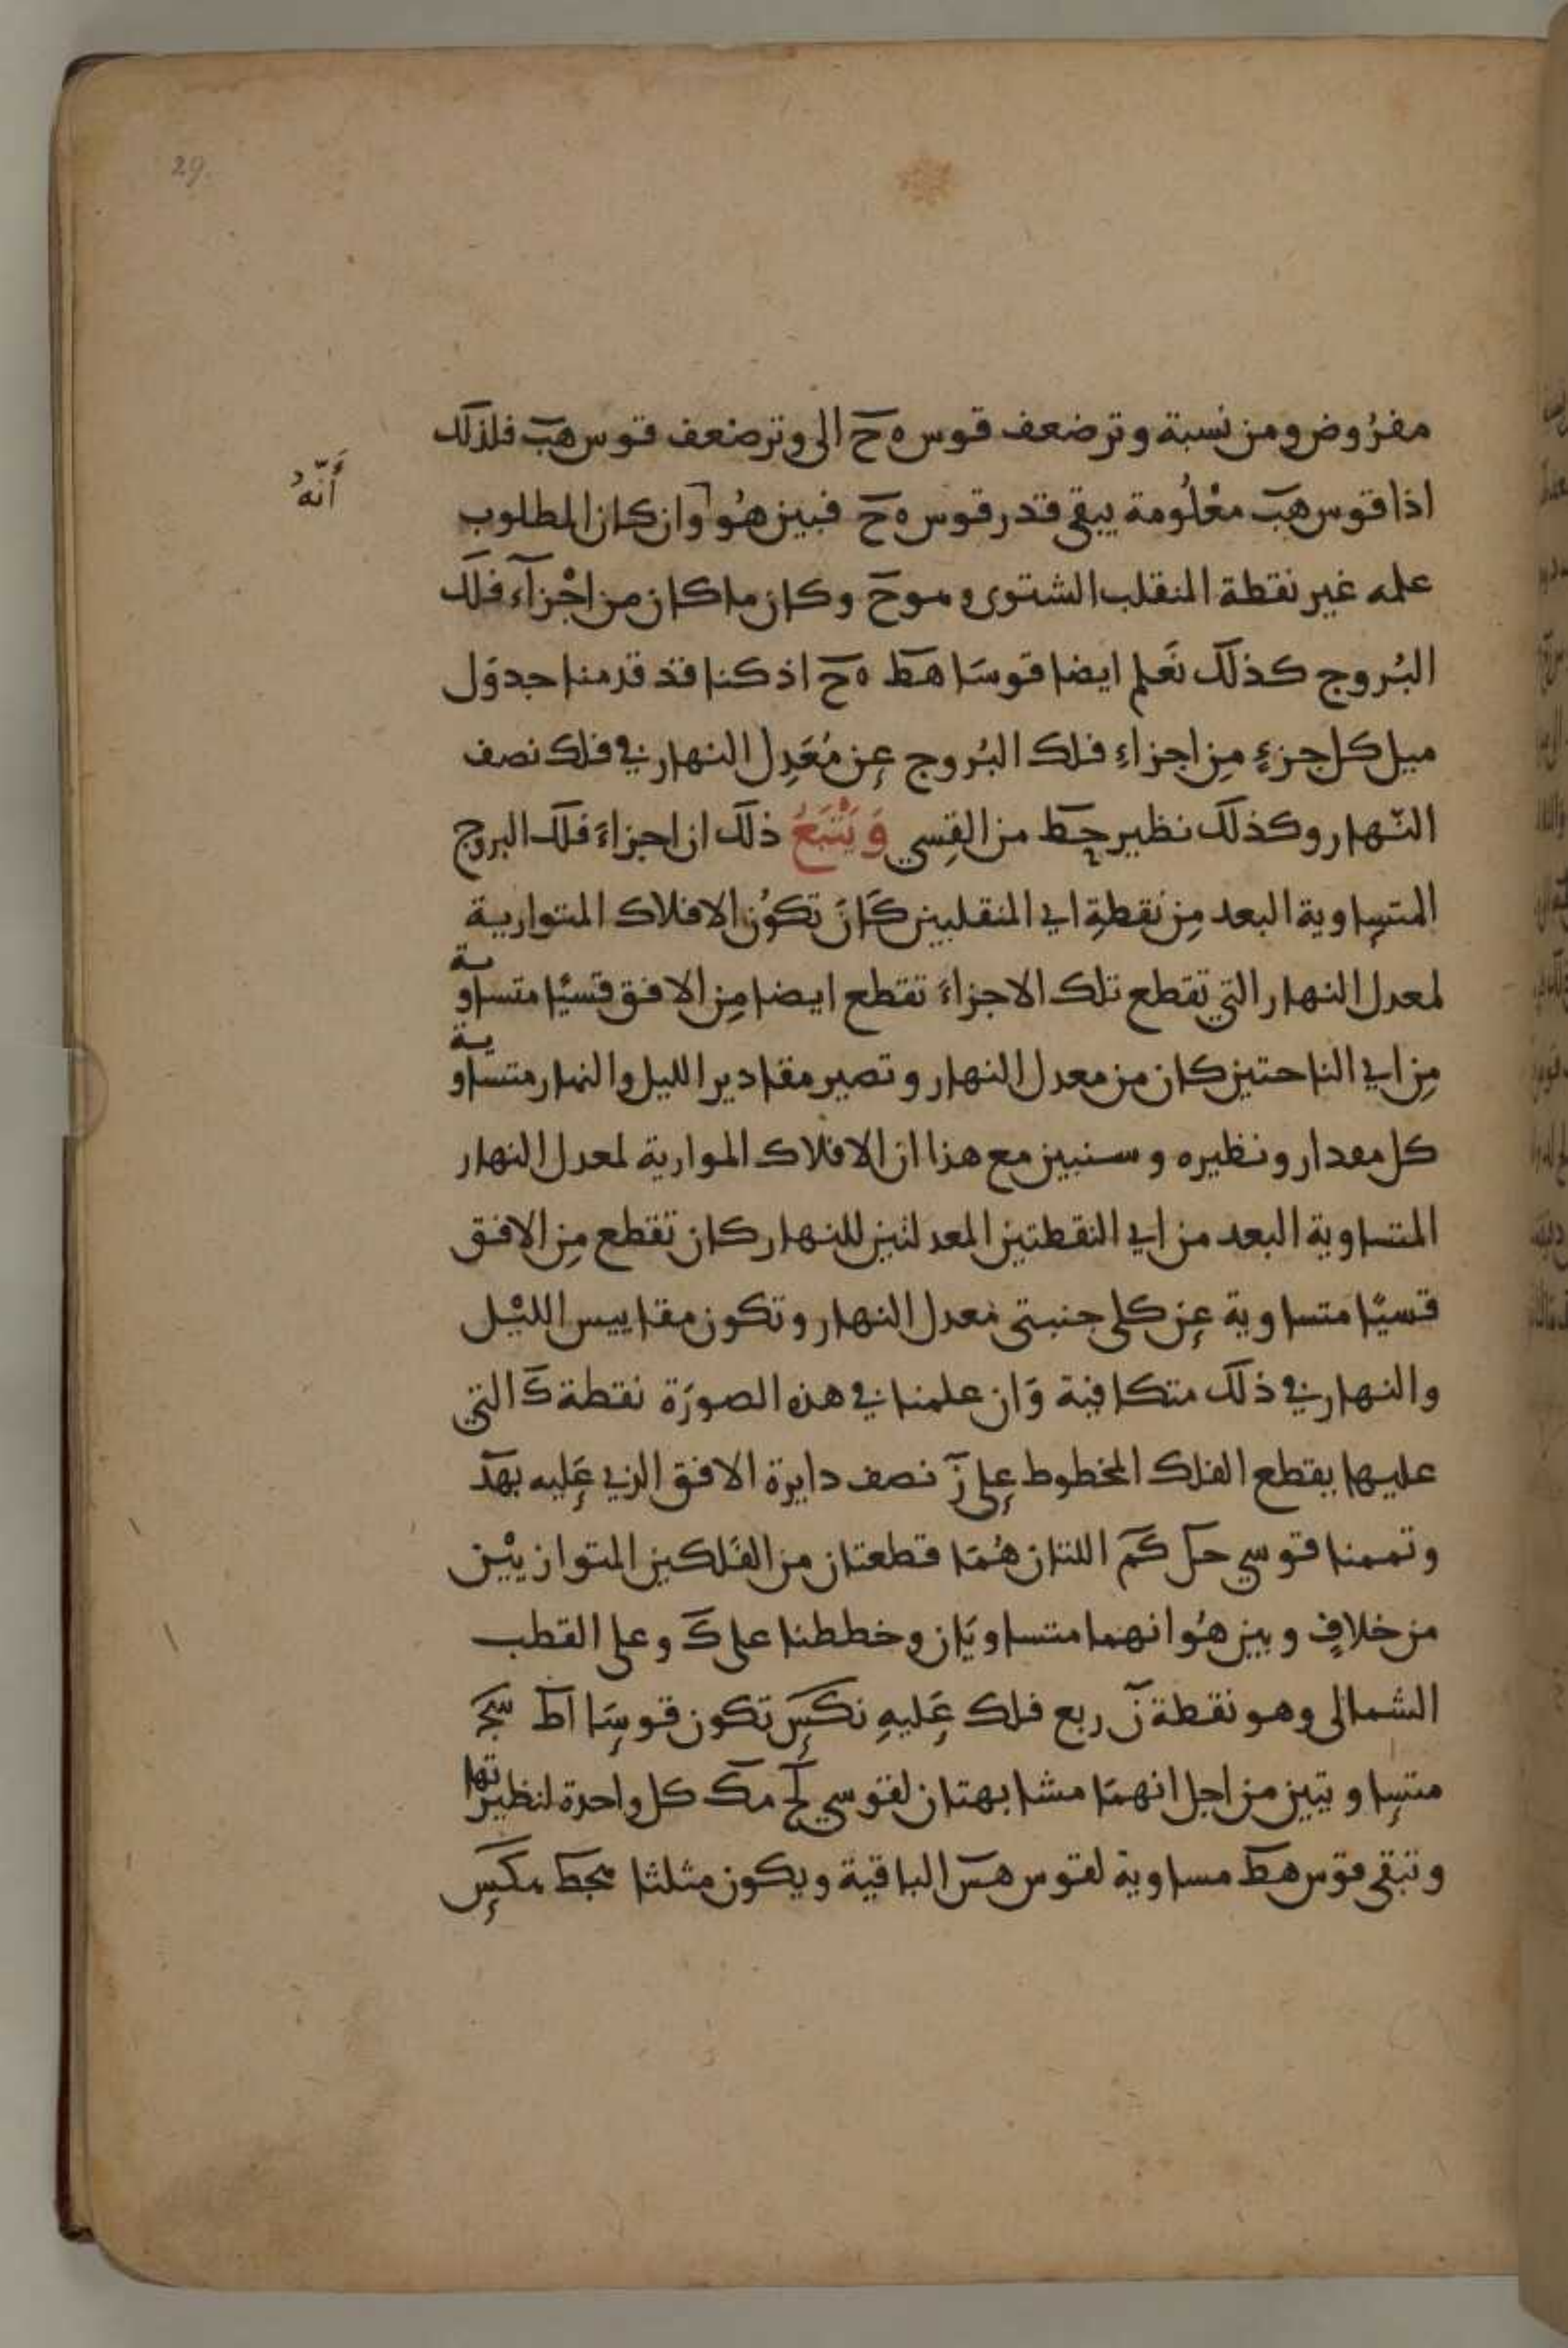 29
مفرُوض ومن نسبة وتر ضعف قوس ه ح الى وتر ضعف قوس هب فلذلك
اذا قوس هب معْلُومة يبقى قدر قوس ه ح فبين هُوا وان كان المطلوب
أَنّهُ
علمه غير نقطة المنقلب الشتوى وموح وكان ما كان من اجْزآء فلك
البُروج كذلك نَعلم ايضا قوسَا هط ه ح اذ كنا قد قدمنا جدوَل
ميل كل جزءٍ مِن اجزاءِ فلك البُروج عن مُعَدِل النهار في فلك نصف
النّهار وكذلك نظير حط من القِسي وَيَتْبَعُ ذلك ان اجزاءَ فلك البروج
المتساوية البعد مِن نقطةِ اي المنقلبين كَانَ تكوُن الافلاك المتوارية
لمعدل النهار التي تقطع تلك الاجزاءَ تقطع ايضا مِن الافق قسيًا متساوية
مِن اي الناحتين كان من معدل النهار وتصير مقادير الليل والنهار متساوية
كل معدار ونظيره وسنبين مع هذا ان الافلاك الموارية لمعدل النهار
المتساوية البعد من اي النقطتين المعدلتين للنهار كان تقطع مِن الافق
قسيًا متساوية عن كلى جنبتى معدل النهار وتكون مقاييس الليْل
والنهار في ذلك متكافية وَان علمنا في هذه الصورَة نقطة كَ التي
عليها يقطع الفلك المخطوط على زَ نصف دايرة الافق الذي عَليه بهد
وتممنا قوسي حل كم اللتان هُمَا قطعتان من الفَلكين المتوازييْن
من خلافٍ وبين هُوا انهما متساويَان وخططنا على كَ وعلى القطب
الشمالى وهو نقطة نَ ربع فلك عَليهِ نكس تكون قوسَا اط سج
متساويتين من اجل انهمَا مشابهتان لقوسي لح مك كل واحدة لنظيرتها
وتبقى قوس هط مساوية لقوس هس الباقية ويكون مثلثا هحط هكس